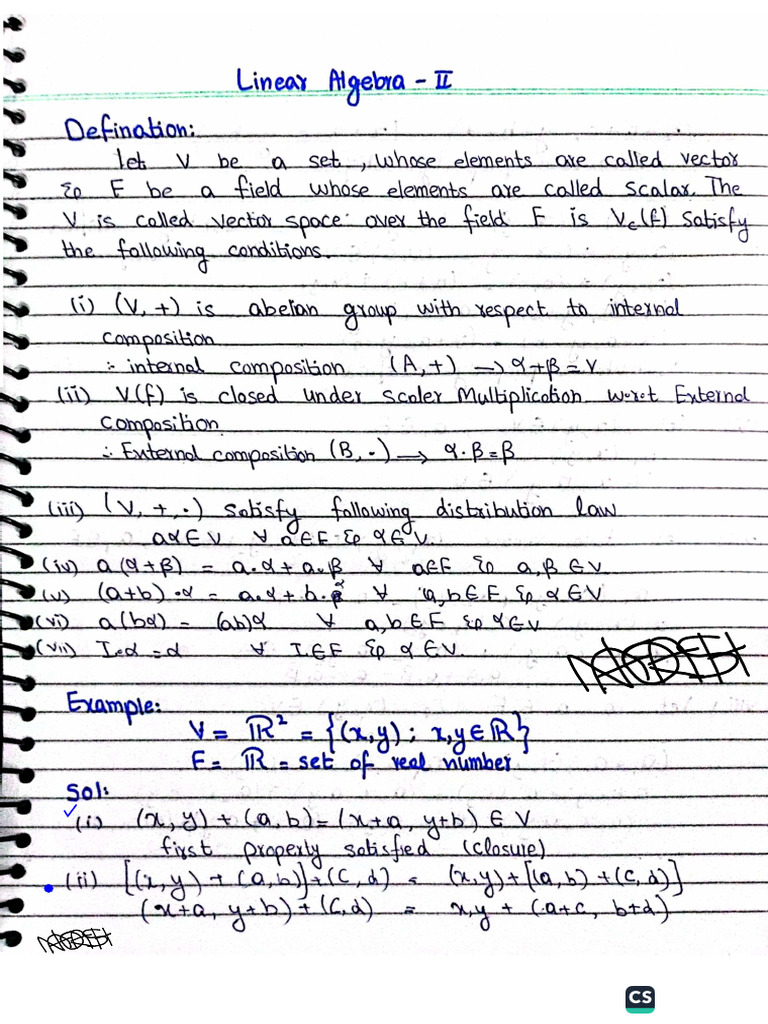 Linear Algebra - II
Defination:
let V be a set, whose elements are called vector
& F be a field whose elements are called scalar. The
V is called vector space over the field F is Vc(f) Satisfy
the following conditions.
(i) (V, +) is abelian group with respect to internal
composition
∴ internal composition (A, +) → α+β = γ
(ii) V(f) is closed under scaler Multiplication w.r.t External
composition
∴ External composition (B, ·) → α·β = β
(iii) (V, +, ·) satisfy following distribution law
aα∈V ∀ a∈F & α∈V.
(iv) a(α+β) = a·α + a·β ∀ a∈F & α, β ∈V
(v) (a+b)·α = a·α + b· ∀ a,b∈F, & α∈V
(vi) a(bα) = (ab)α ∀ a,b∈F & α∈V
(vii) I·α = α ∀ I∈F & α∈V.
Example:
V = ℝ² = {(x,y) ; x,y∈ℝ}
F = ℝ = set of real number
Sol:
(i) (x,y) + (a,b) = (x+a, y+b) ∈ V
first property satisfied (closure)
(ii) [(x,y) + (a,b)] + (c,d) = (x,y) + [(a,b) + (c,d)]
(x+a, y+b) + (c,d) = x,y + (a+c, b+d)
CS